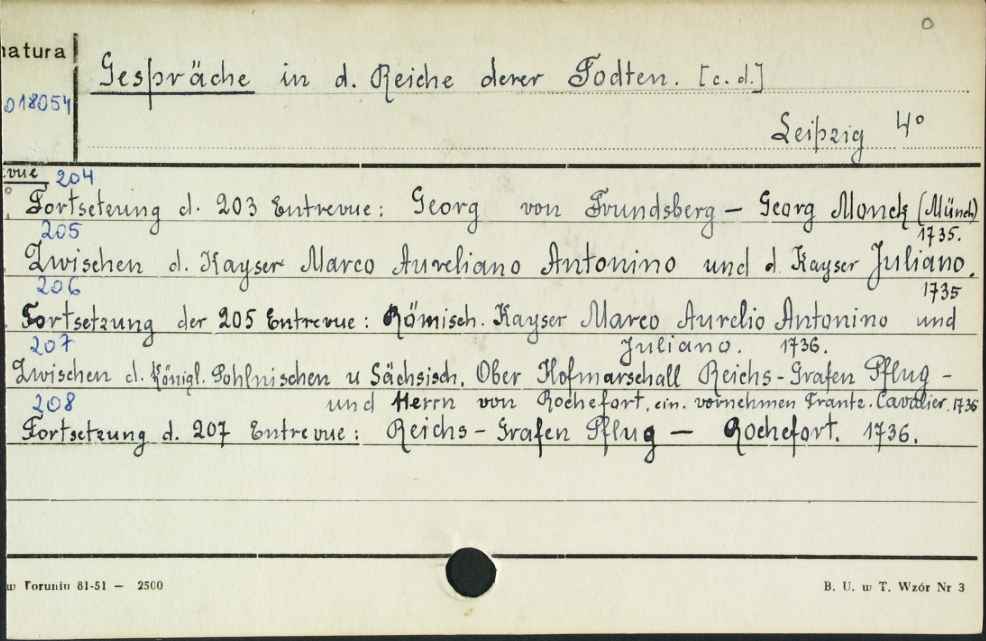 0
natura
Gespräche in d. Reiche derer Todten. [c. d.]
018054
Leipzig 4°
204
Fortseteung d. 203 Entrevue: Georg von Frundsberg – Georg Monck (Münch)
205 1735.
Zwischen d. Kayser Marco Aureliano Antonino und d. Kayser Juliano.
206 1735
Fortsetzung der 205 Entrevue: Römisch. Kayser Marco Aurelio Antonino und
207 Juliano. 1736.
Zwischen d. Königl. Pohlnischen u Sächsisch. Ober Hofmarschall Reichs-Grafen Pflug –
208 und Herrn von Rochefort, ein. vornehmen Frantz. Cavalier. 1736
Fortsetzung d. 207 Entrevue: Reichs-Grafen Pflug – Rochefort. 1736.
w Toruniu 81-51 – 2500 B. U. w T. Wzór Nr 3